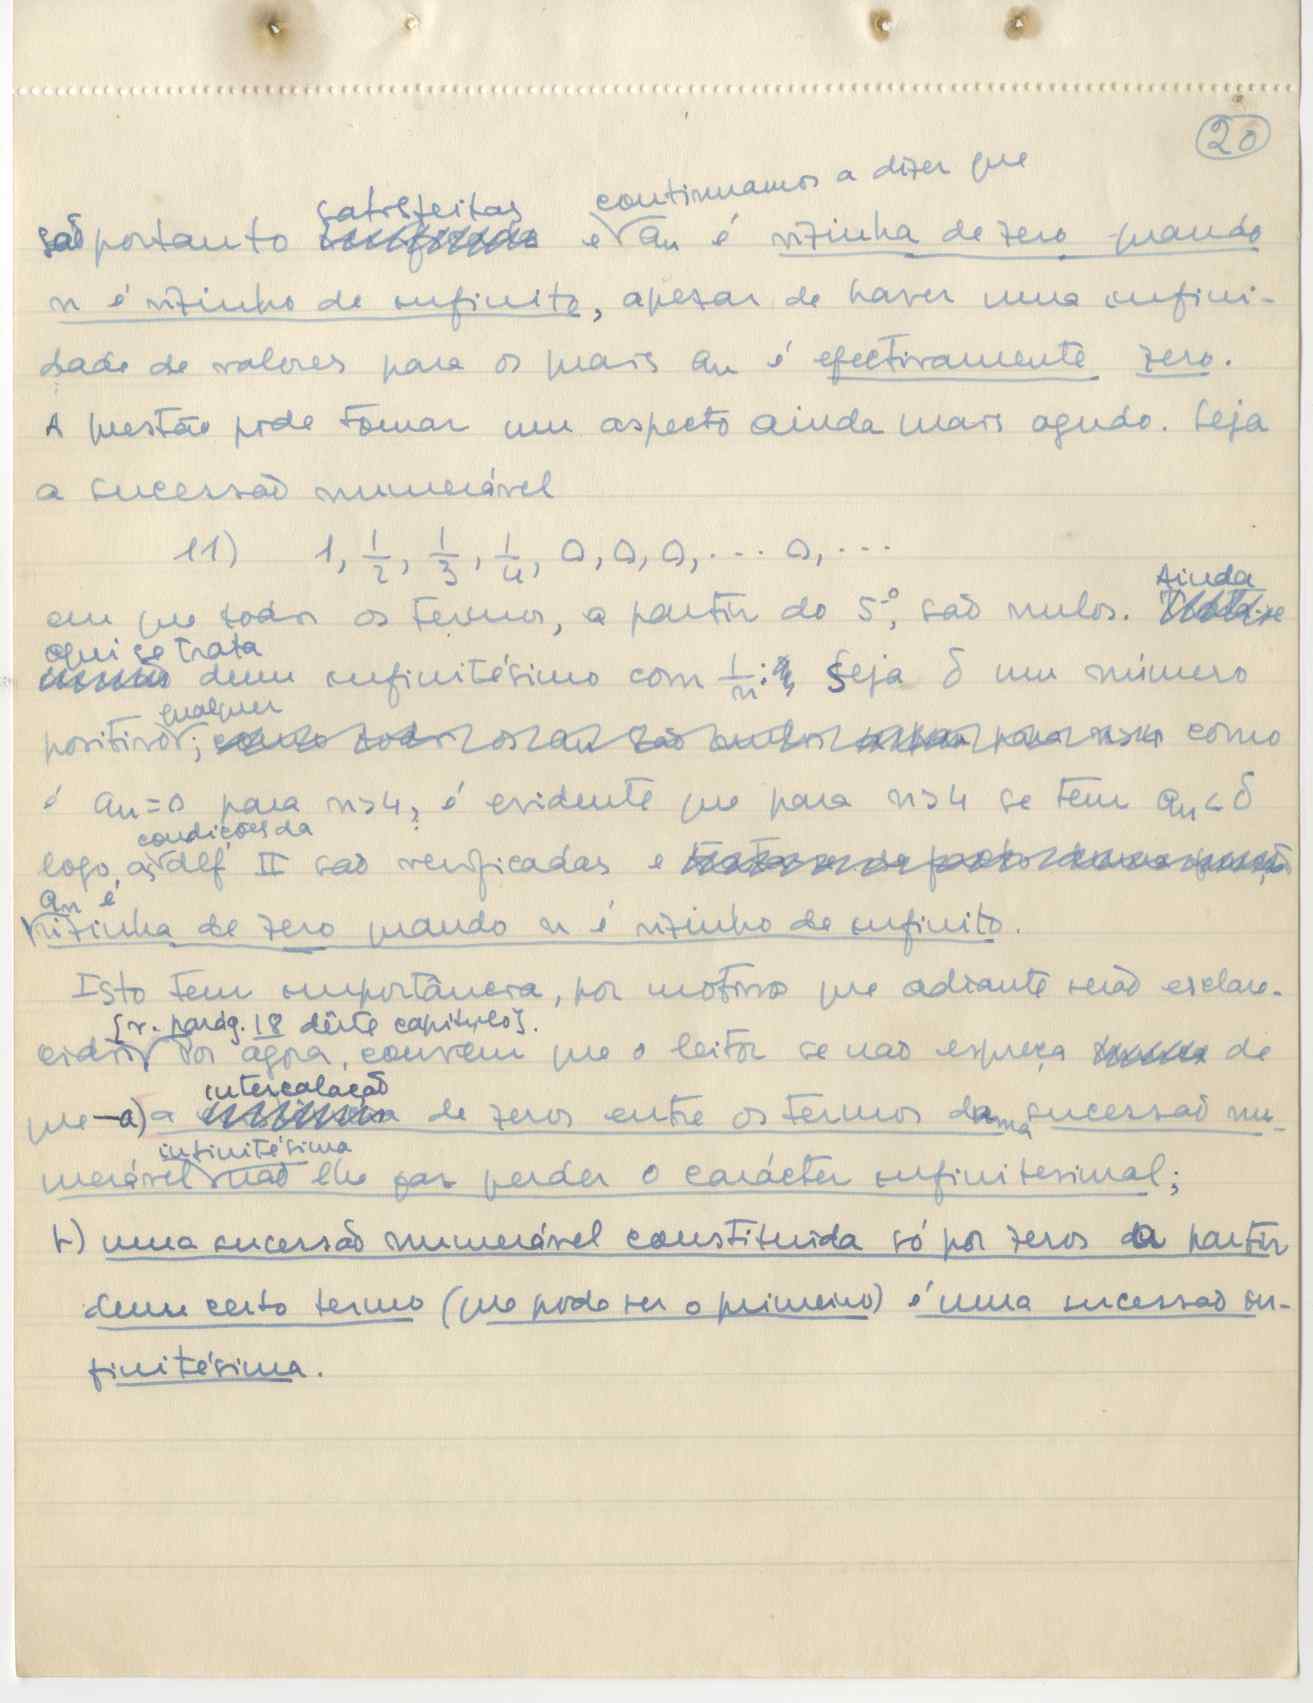 20
são portanto satisfeitas e continuamos a dizer que an é vizinha de zero quando
n é vizinho de infinito, apezar de haver uma infini-
dade de valores para os quais an é efectivamente zero.
A questão pode tomar um aspecto ainda mais agudo. Seja
a sucessão numerável
11) 1, 1/2, 1/3, 1/4, 0, 0, 0, ... 0, ...
em que todos os termos, a partir do 5º, são nulos. Ainda
aqui se trata dum infinitésimo com 1/n: Seja δ um número
positivo qualquer; como todos os an são nulos para n>4 como
é an=0 para n>4, é evidente que para n>4 se tem an<δ
logo, as condições da def II são verificadas e
an é vizinha de zero quando n é vizinho de infinito.
Isto tem importância, por motivos que adiante serão esclare-
cidos [v. parág. 18 dêste capítulo]. Por agora, convém que o leitor se não esqueça de
que — a) a intercalação de zeros entre os termos duma sucessão nu-
merável infinitésima não lhe faz perder o carácter infinitesimal;
b) uma sucessão numerável constituida só por zeros a partir
dum certo termo (que pode ser o primeiro) é uma sucessão in-
finitésima.